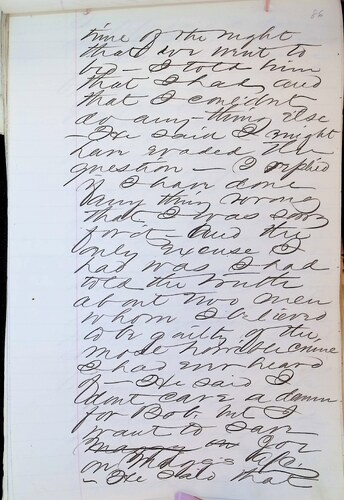 86
time of the night
that we went to
bed I told him
that I had, and
that I couldnt
do any thing else
- He said I might
have evaded the
question - I replied
if I have done
any thing wrong
that I was sorry
for it - and the
only excuse I
had was I had
told the truth
about two men
whom I believed
to be guilty of the
most horrible crime
I had ever heard
of - He said I
dont care a damn
for Bob, but I
want to save
you
on
- He said that